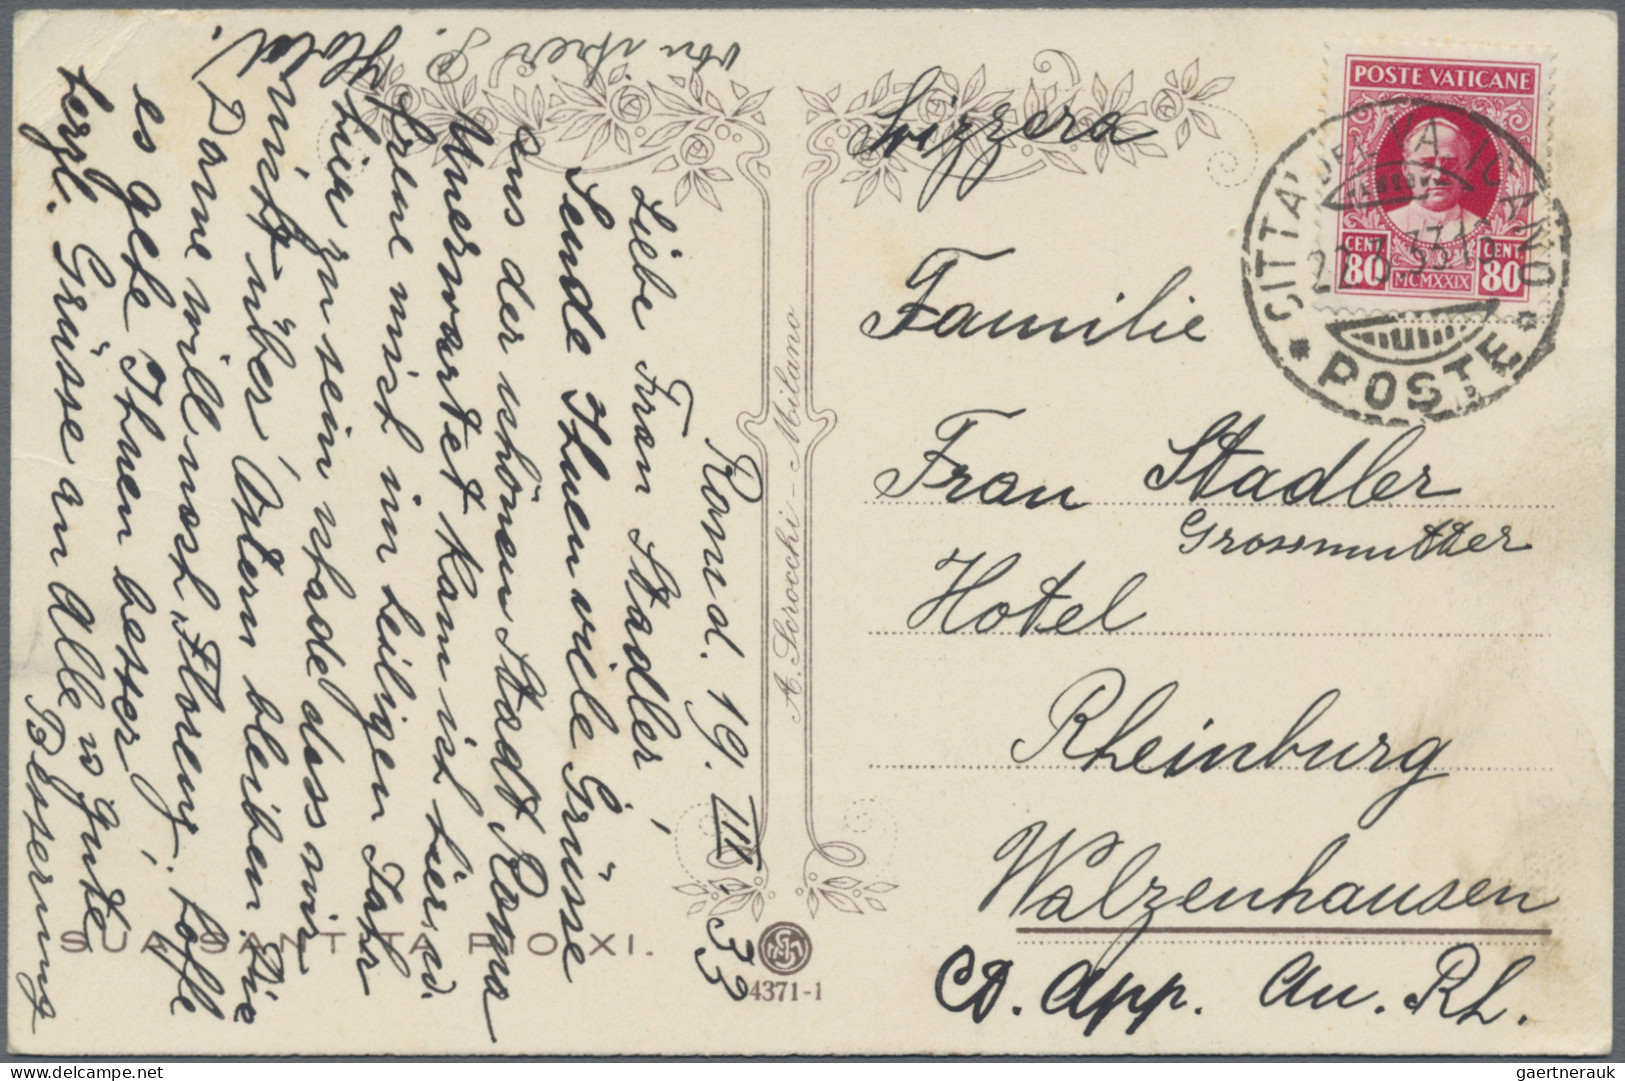 Rom d. 19. III. 33
Liebe Frau Stadler,
Sende Ihnen viele Grüsse
aus der schönen Stadt Roma
Unerwartet kam ich hier u.
freue mich im heiligen Jahr
hier zu sein schade dass wir
nicht über Ostern bleiben. Die
Dame will noch Florenz. hoffe
es gehe Ihnen besser.
herzl. Grüsse an Alle u gute
Besserung
von
Svizzera
Familie
Frau Stadler
Grossmutter
Hotel
Rheinburg
Walzenhausen
Ct. App. Au. Rh.
POSTE VATICANE
CENT. 80
MCMXXIX
CENT. 80
CITTA' DEL VATICANO
POSTE
A. Scrocchi - Milano
SUA SANTITA PIO XI.
4371-1
gaertnerauk